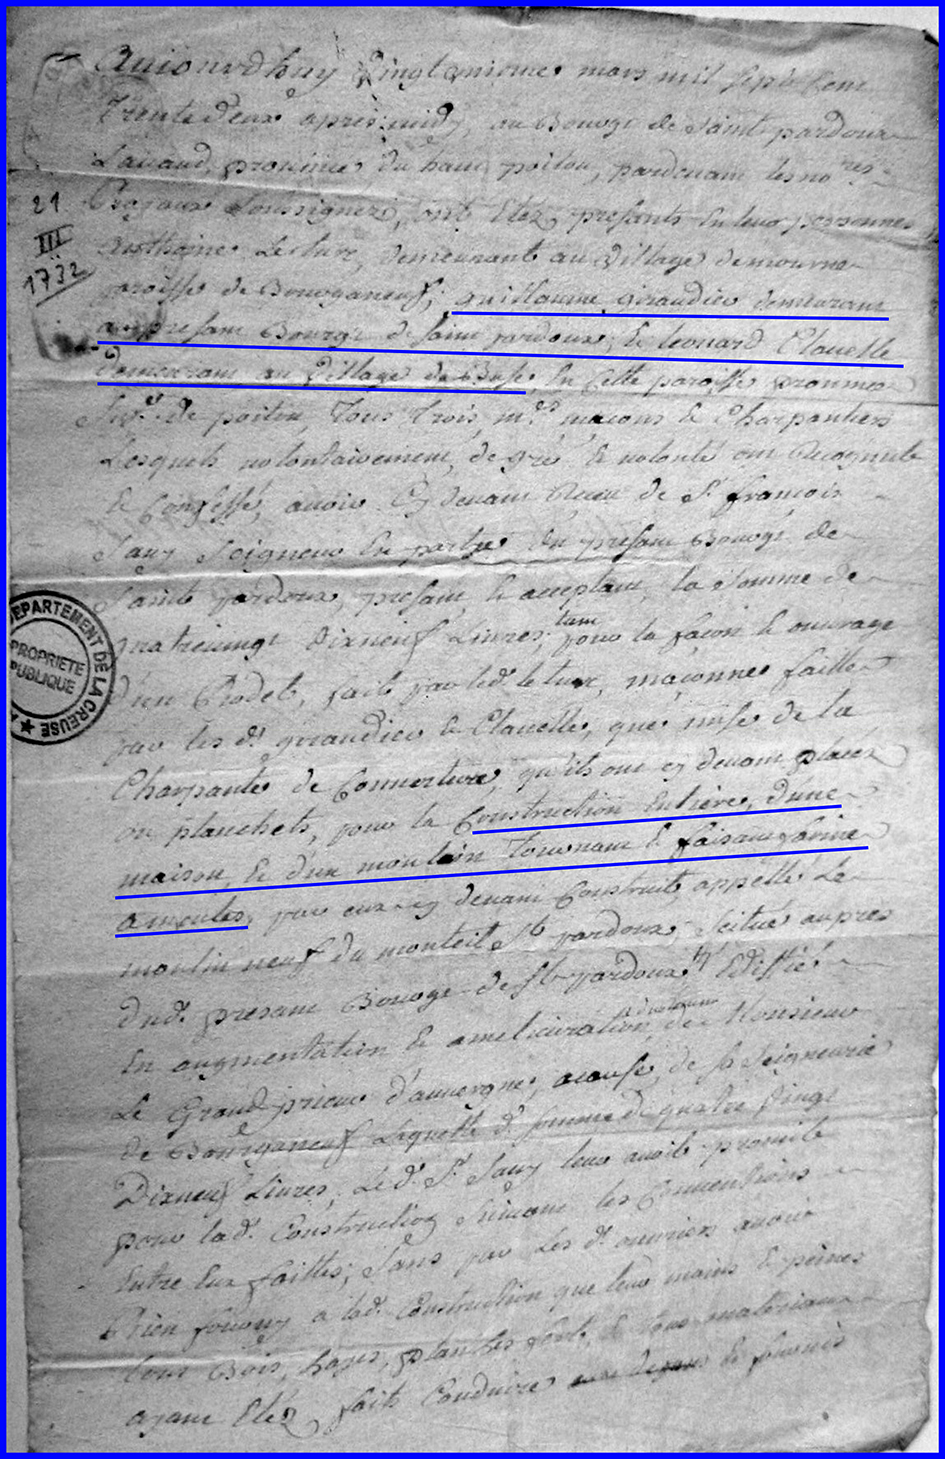 Aujourdhuy Vingtunieme mars mil sept Cent
Trente deux apres midy, au Bourg de Saint pardoux
Lavaud, province du haut poitou, pardevant les nores
Royaux Soussignez, ont Etez presants En leurs personnes
Anthoine Leclure, demeurant au Village de
paroisse de Bourganeuf; guilhaume giraudier demeurant
au presant Bourg de Saint pardoux, & leonard Clauelle
demeurant au Village de En Cette paroisse province
de poitou, Tous trois, mes masons & Charpantiers
Lesquels volontairement, de gré & volonté ont Recognut
& Confessé, avoir Cy devant Receu de Sr françois
Jauy Seigneur En partye du presant Bourg de
Saint pardoux, presant & acceptant, la Somme de
quatrevingt Dixneuf Livres tant pour la façon & ouvrage
d'un Rodet, fait par led. leclure, maçonnes faitte
par les d. giraudier & Clauelle, que mise de la
Charpante & Couverture, qu'ils ont cy devant placé
ou planchets, pour la Construction Entiere, d'une
maison & d'un moulin Tournant & faisant farine
a moules, par eux cy devant Construit, appellé Le
moulin neuf du monteil St pardoux, Scitué aupres
dud. presant Bourg de St pardoux, Ediffié
En augmentation & amelioration de Monsieur
Le Grand prieur d'auvergne, acause de sa Seigneurie
de Bourganeuf Laquelle d. somme de quatre Vingt
Dixneuf Livres, Led. Sr Jauy leur avoit promite
pour lad. Construction Suivant les Conventions
Entre Eux faittes; Sans que Les d. ouvriers avoir
Rien fourny a lad. Construction que leur mains & peines
tous Bois, planches & tous materiaux
ayant Etez fait Conduire & fournir
21
III
1732
DEPARTEMENT DE LA CREUSE
PROPRIETE
PUBLIQUE